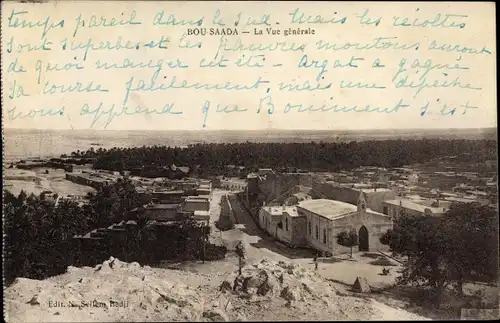 temps pareil dans le sud. Mais les récoltes
BOU-SAADA — La Vue générale
sont superbes et les pauvres moutons auront
de quoi manger cet été - Argat a gagné
sa course facilement, mais une dépêche
nous apprend que Bonniment s'est
Edit. N. Sellem Hadji